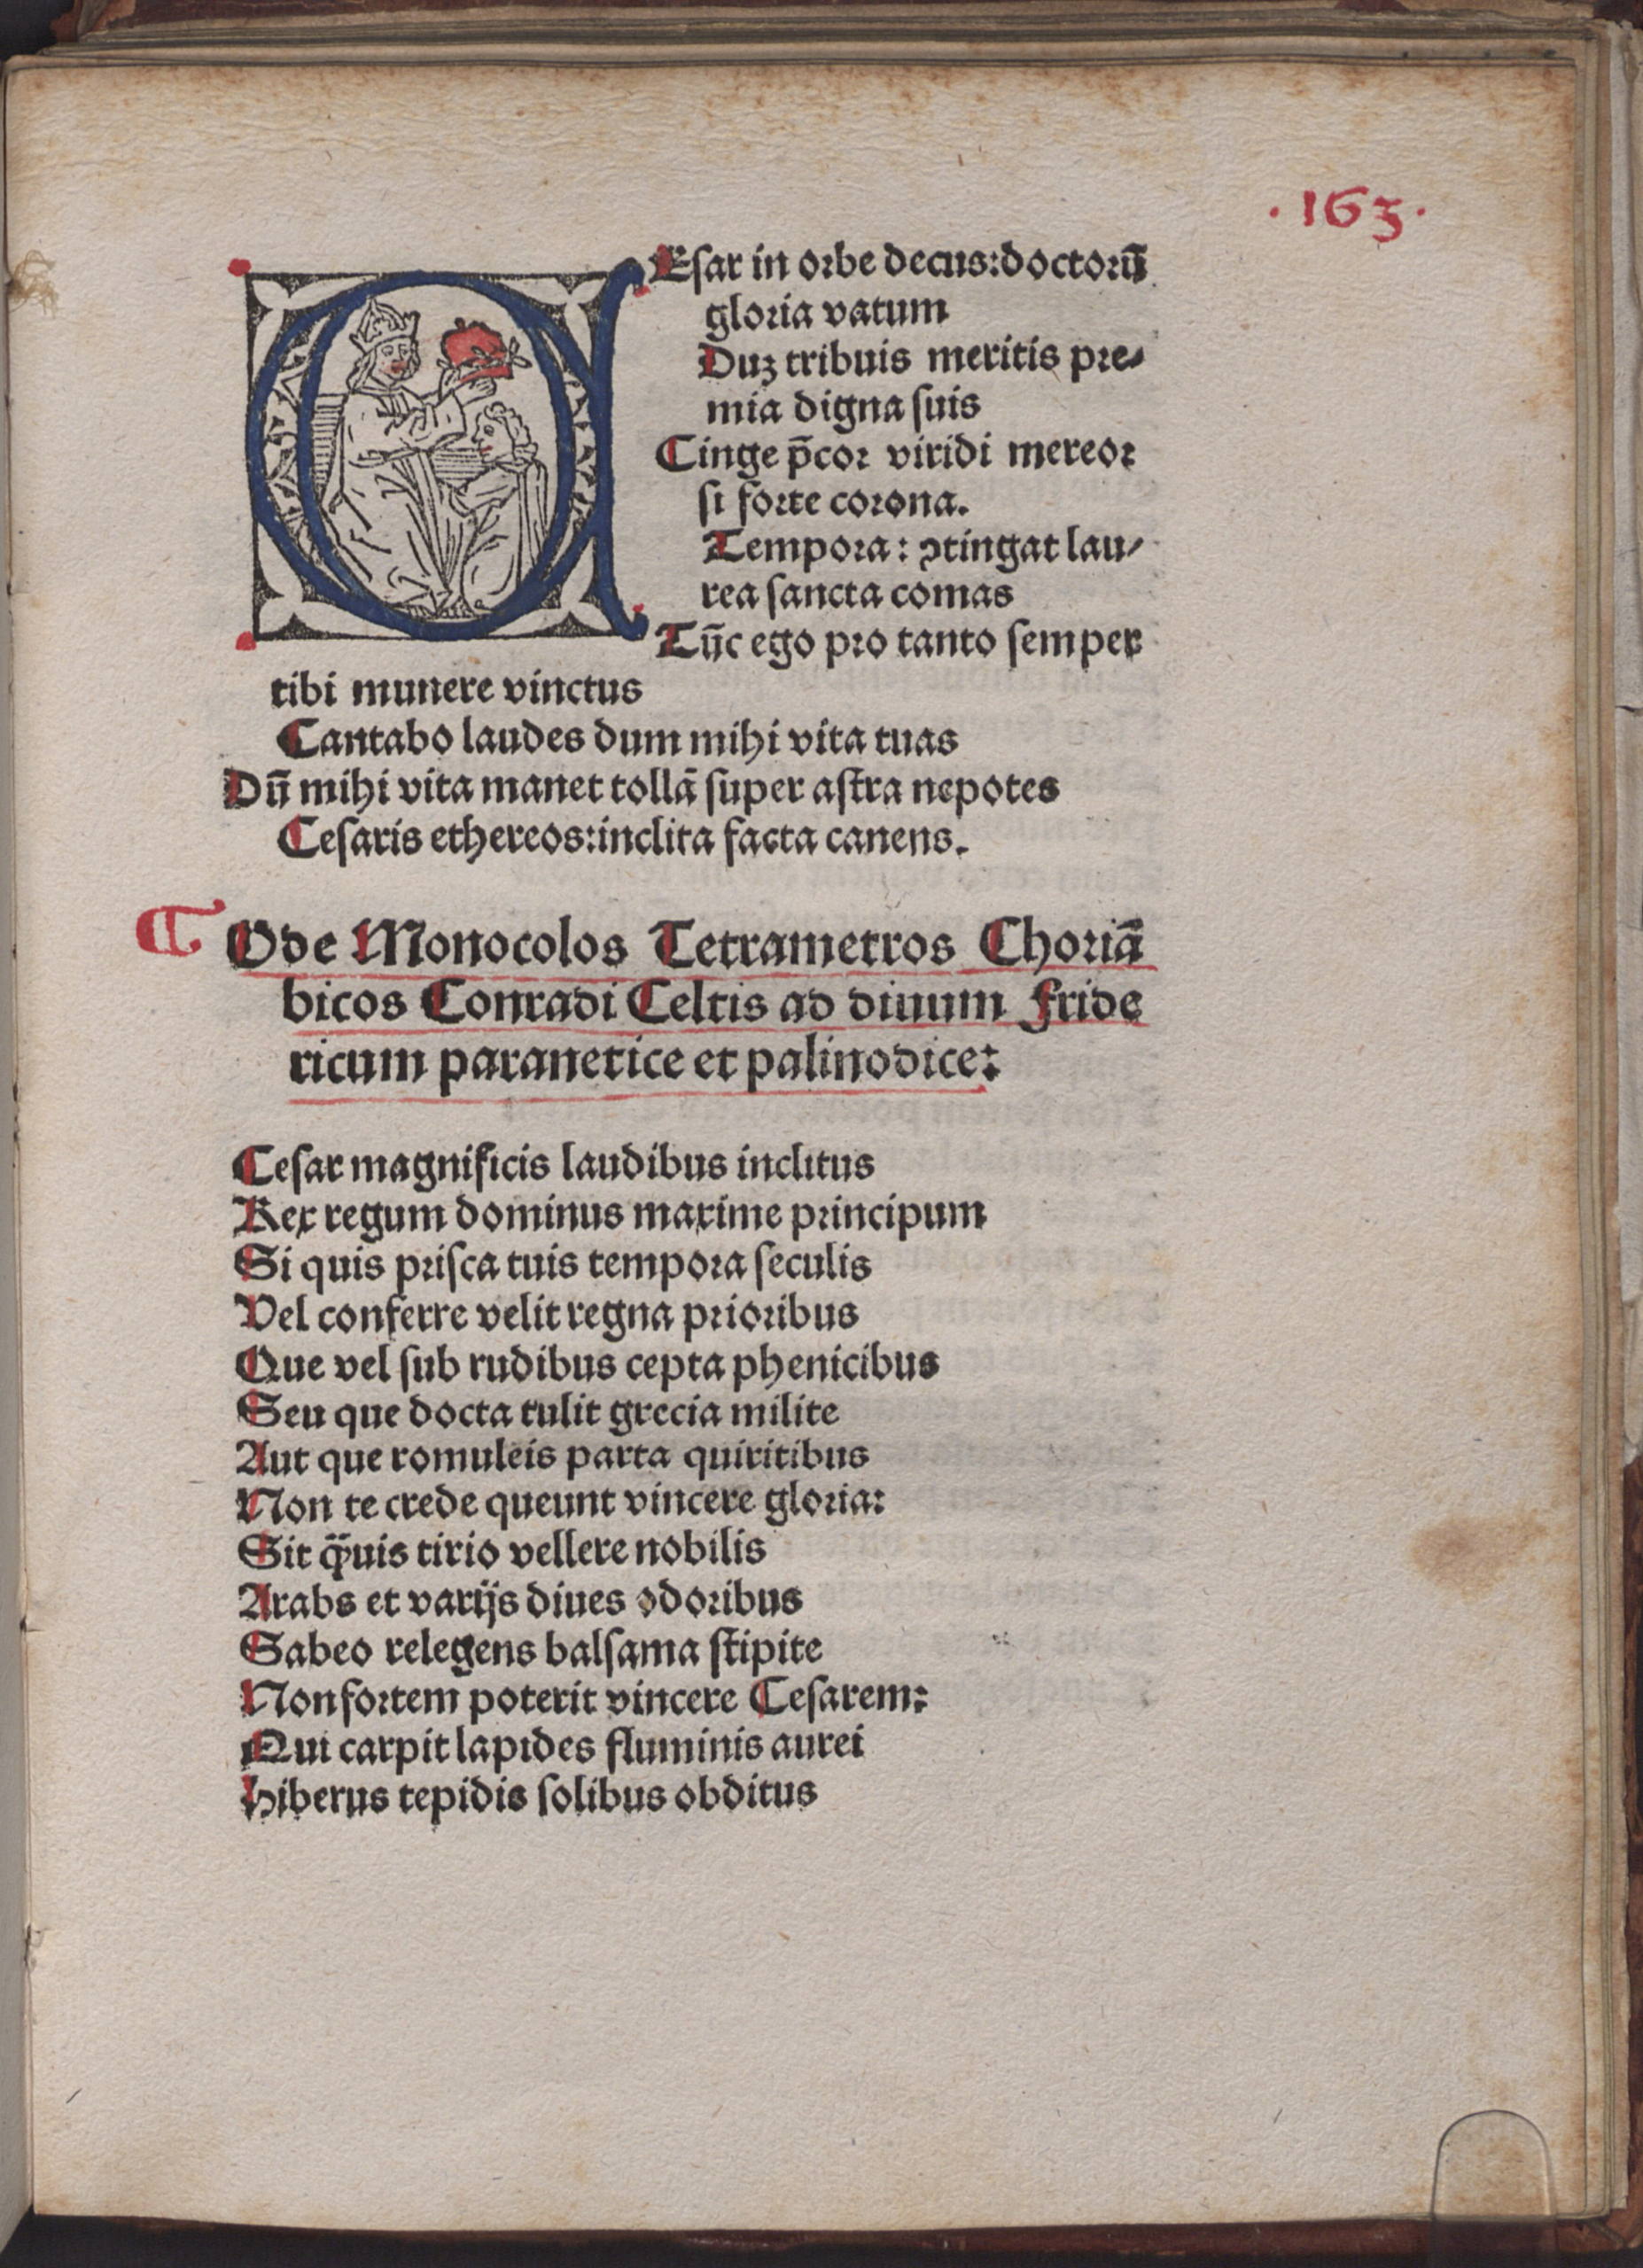 ·163·
CEſar in orbe decus:doctorū
gloria vatum
Duꝫ tribuis meritis pre⸗
mia digna ſuis
Cinge p̄cor viridi mereor
ſi forte corona.
Tempora: ꝯtingat lau⸗
rea ſancta comas
Tūc ego pro tanto ſemper
tibi munere vinctus
Cantabo laudes dum mihi vita tuas
Dū mihi vita manet tollā ſuper aſtra nepotes
Ceſaris ethereos:inclita facta canens.
¶ Ode Monocolos Tetrametros Choriā
bicos Conradi Celtis ad diuum Fride
ricum paranetice et palinodice:
Ceſar magnificis laudibus inclitus
Rex regum dominus maxime principum
Si quis priſca tuis tempora ſeculis
Vel conferre velit regna prioribus
Que vel ſub rudibus cepta phenicibus
Seu que docta tulit grecia milite
Aut que romuleis parta quiritibus
Non te crede queunt vincere gloria:
Sit q̄uis tirio vellere nobilis
Arabs et varijs diues odoribus
Sabeo relegens balſama ſtipite
Non fortem poterit vincere Ceſarem:
Qui carpit lapides fluminis aurei
Hiberus tepidis ſolibus obditus